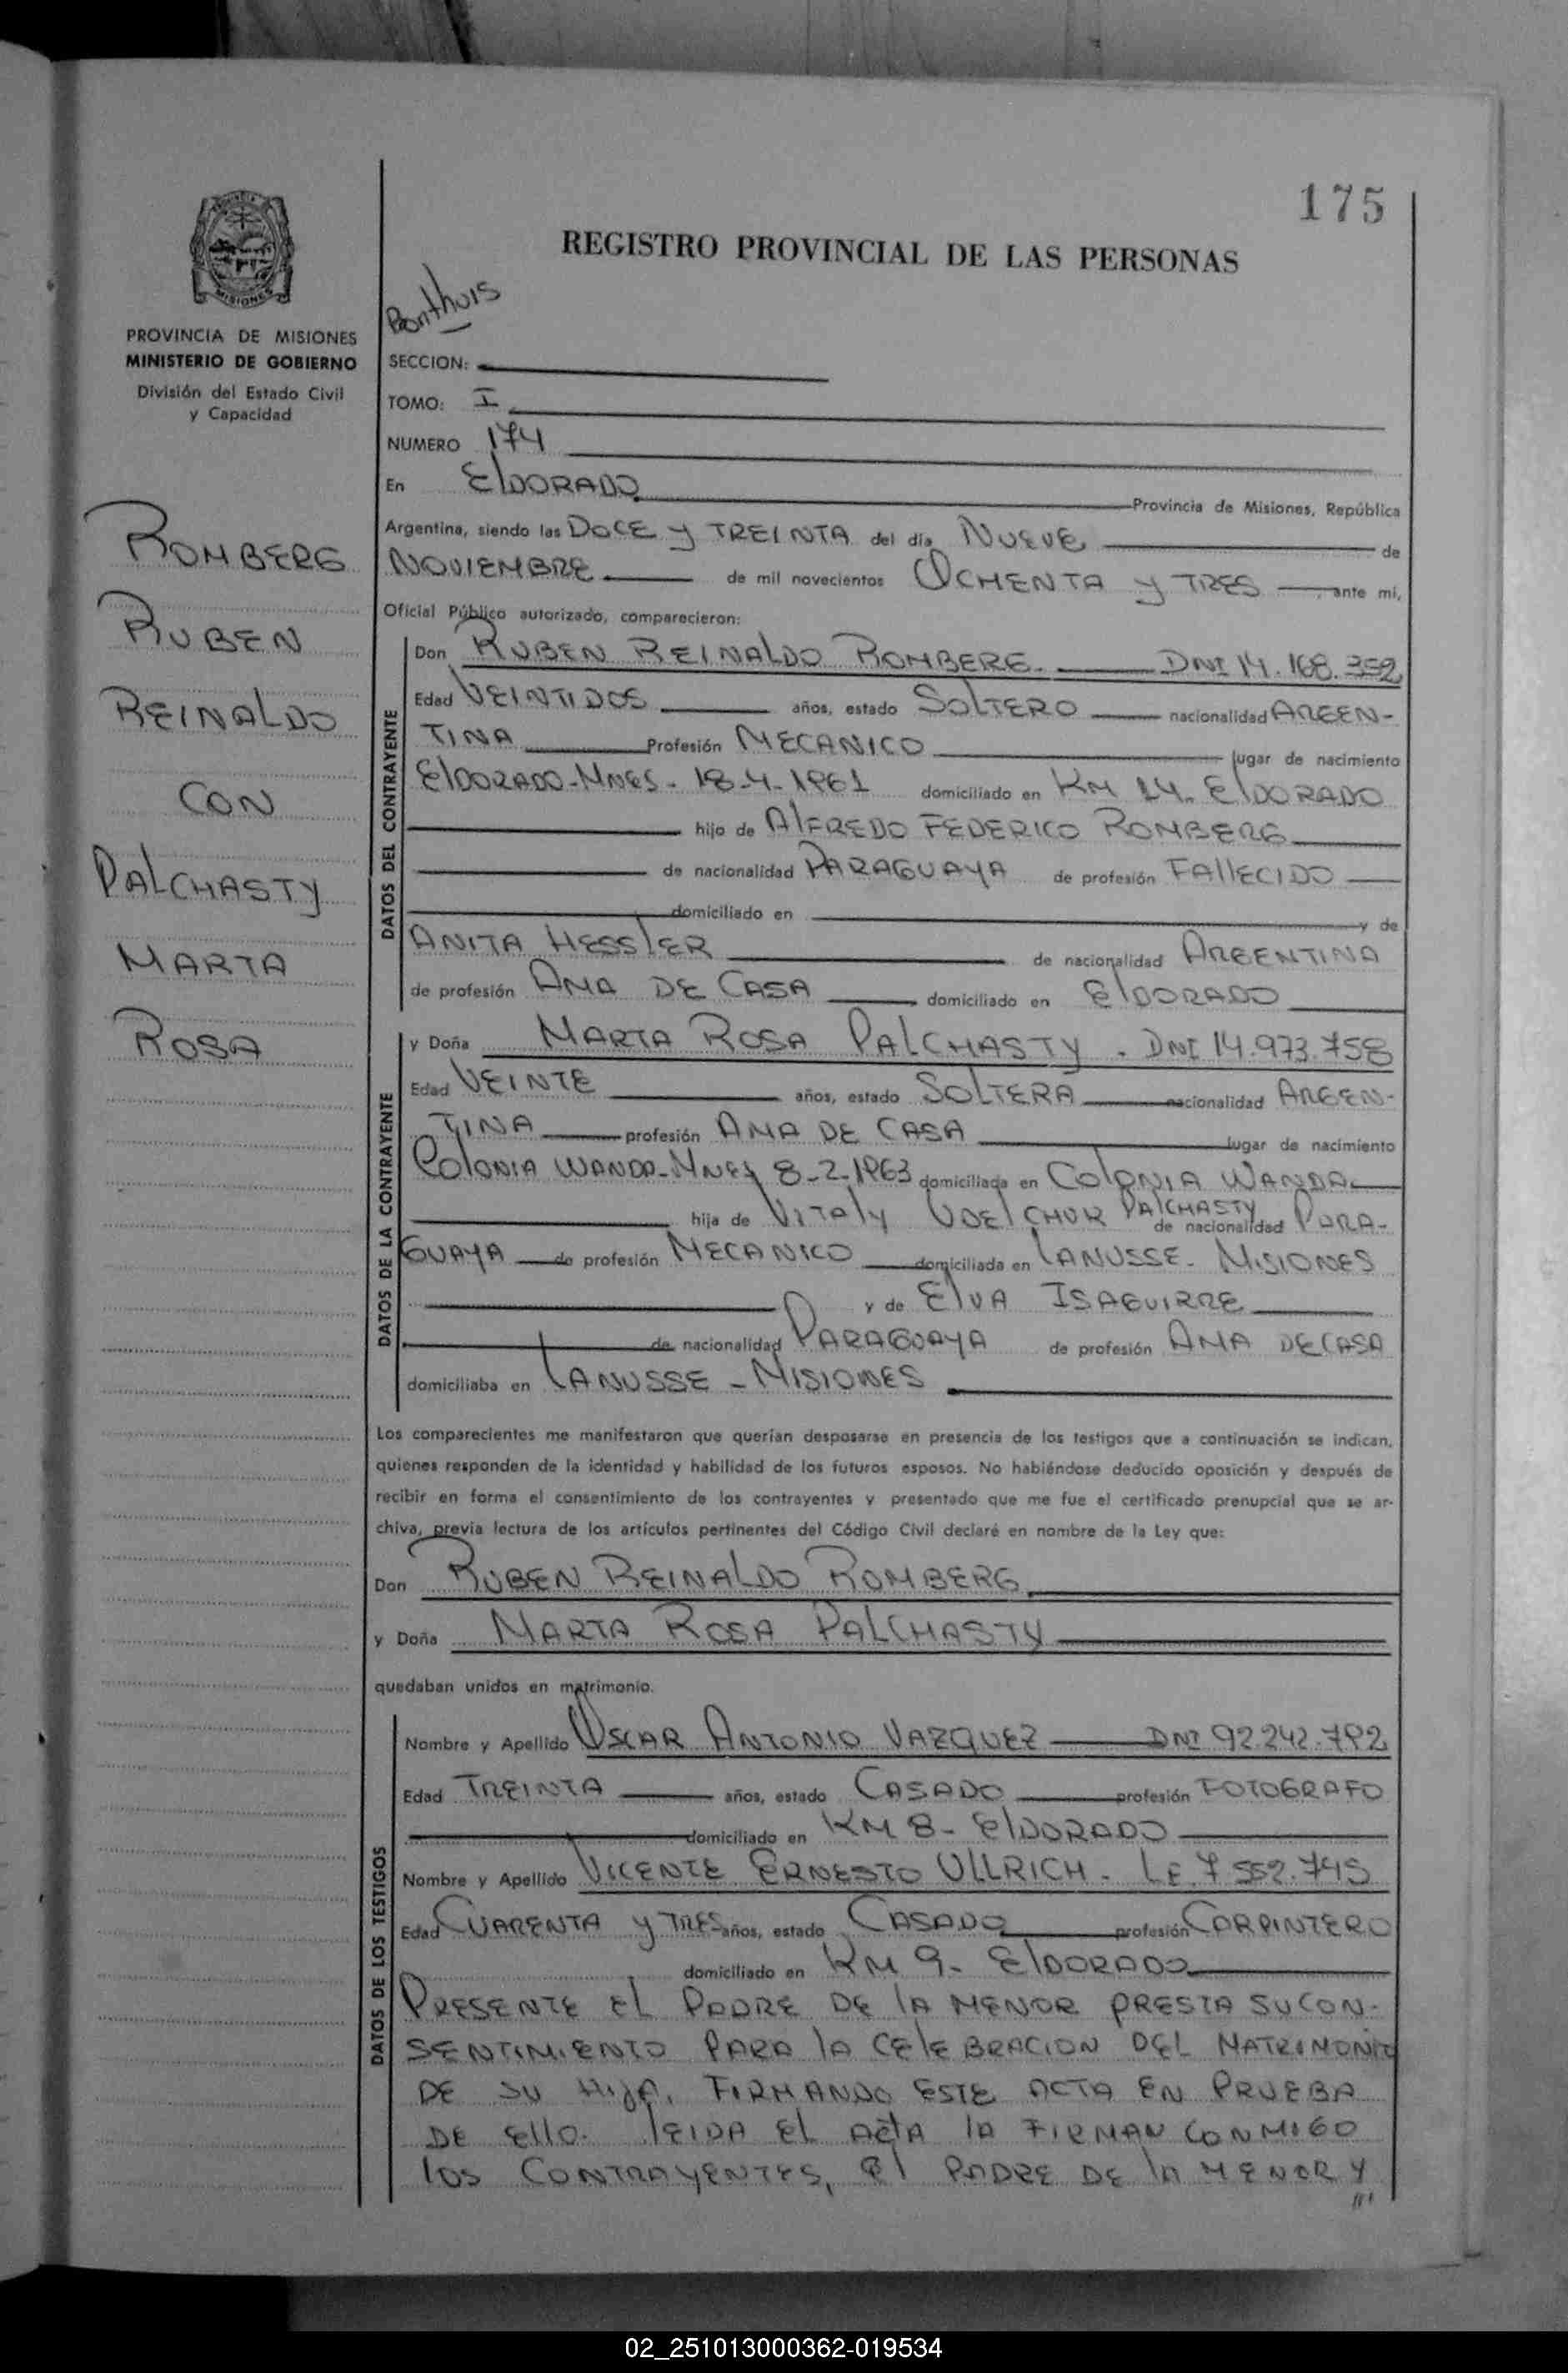 175
REGISTRO PROVINCIAL DE LAS PERSONAS
MISIONES
PROVINCIA DE MISIONES
MINISTERIO DE GOBIERNO
División del Estado Civil
y Capacidad
Bonthuis
SECCION:
TOMO: I
NUMERO 174
En ElDORADO Provincia de Misiones, República
Argentina, siendo las DOCE y TREINTA del día NUEVE de
NOVIEMBRE de mil novecientos OCHENTA y TRES ante mí,
Oficial Público autorizado, comparecieron:
ROMBERG
RUBEN
REINALDO
CON
PALCHASTY
MARTA
ROSA
DATOS DEL CONTRAYENTE
Don RUBEN REINALDO ROMBERG. DNI 14.168.352
Edad VEINTIDOS años, estado SOLTERO nacionalidad ARGEN-
TINA Profesión MECANICO lugar de nacimiento
ElDORADO-MNES- 18-4-1961 domiciliado en KM 14. ElDORADO
hijo de AlFREDO FEDERICO ROMBERG
de nacionalidad PARAGUAYA de profesión FAllECIDO
domiciliado en y de
ANITA HESSlER de nacionalidad ARGENTINA
de profesión AMA DE CASA domiciliado en ElDORADO
DATOS DE LA CONTRAYENTE
y Doña MARTA ROSA PALCHASTY. DNI 14.973.758
Edad VEINTE años, estado SOLTERA nacionalidad ARGEN-
TINA profesión AMA DE CASA lugar de nacimiento
COlONIA WANDA-MNES 8-2-1963 domiciliada en COlONIA WANDA
hija de VITAly UDElCHUK PAlCHASTY de nacionalidad PARA-
GUAYA de profesión MECANICO domiciliada en lANUSSE- MISIONES
y de ElVA ISAGUIRRE
de nacionalidad PARAGUAYA de profesión AMA DE CASA
domiciliaba en lANUSSE - MISIONES
Los comparecientes me manifestaron que querían desposarse en presencia de los testigos que a continuación se indican,
quienes responden de la identidad y habilidad de los futuros esposos. No habiéndose deducido oposición y después de
recibir en forma el consentimiento de los contrayentes y presentado que me fue el certificado prenupcial que se ar-
chiva, previa lectura de los artículos pertinentes del Código Civil declaré en nombre de la Ley que:
Don RUBEN REINALDO ROMBERG
y Doña MARTA ROSA PALCHASTY
quedaban unidos en matrimonio.
DATOS DE LOS TESTIGOS
Nombre y Apellido OSCAR ANTONIO VAZQUEZ DNI 92.242.792
Edad TREINTA años, estado CASADO profesión FOTOGRAFO
domiciliado en KM 8- ElDORADO
Nombre y Apellido VICENTE ERNESTO ULLRICH- LE. 7 552.745
Edad CUARENTA y TRES años, estado CASADO profesión CARPINTERO
domiciliado en KM 9- ElDORADO
PRESENTE EL PADRE DE lA MENOR PRESTA SU CON-
SENTIMIENTO PARA lA CElEBRACION DEL MATRIMONIO
DE SU HIJA, FIRMANDO ESTE ACTA EN PRUEBA
DE Ello. lEIDA EL ACTA lA FIRMAN CONMIGO
lOS CONTRAYENTES, El PADRE DE lA MENOR y
///
02_251013000362-019534